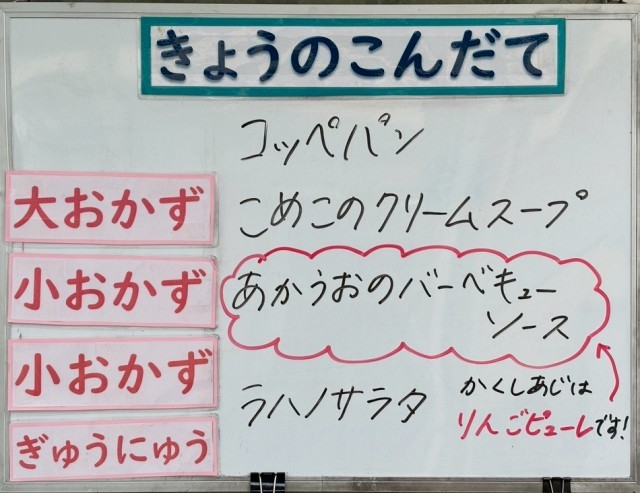 きょうのこんだて
コッペパン
大おかず
こめこのクリームスープ
小おかず
あかうおのバーベキュー
ソース
小おかず
ラハノサラタ
かくしあじは
りんごピューレです!
ぎゅうにゅう